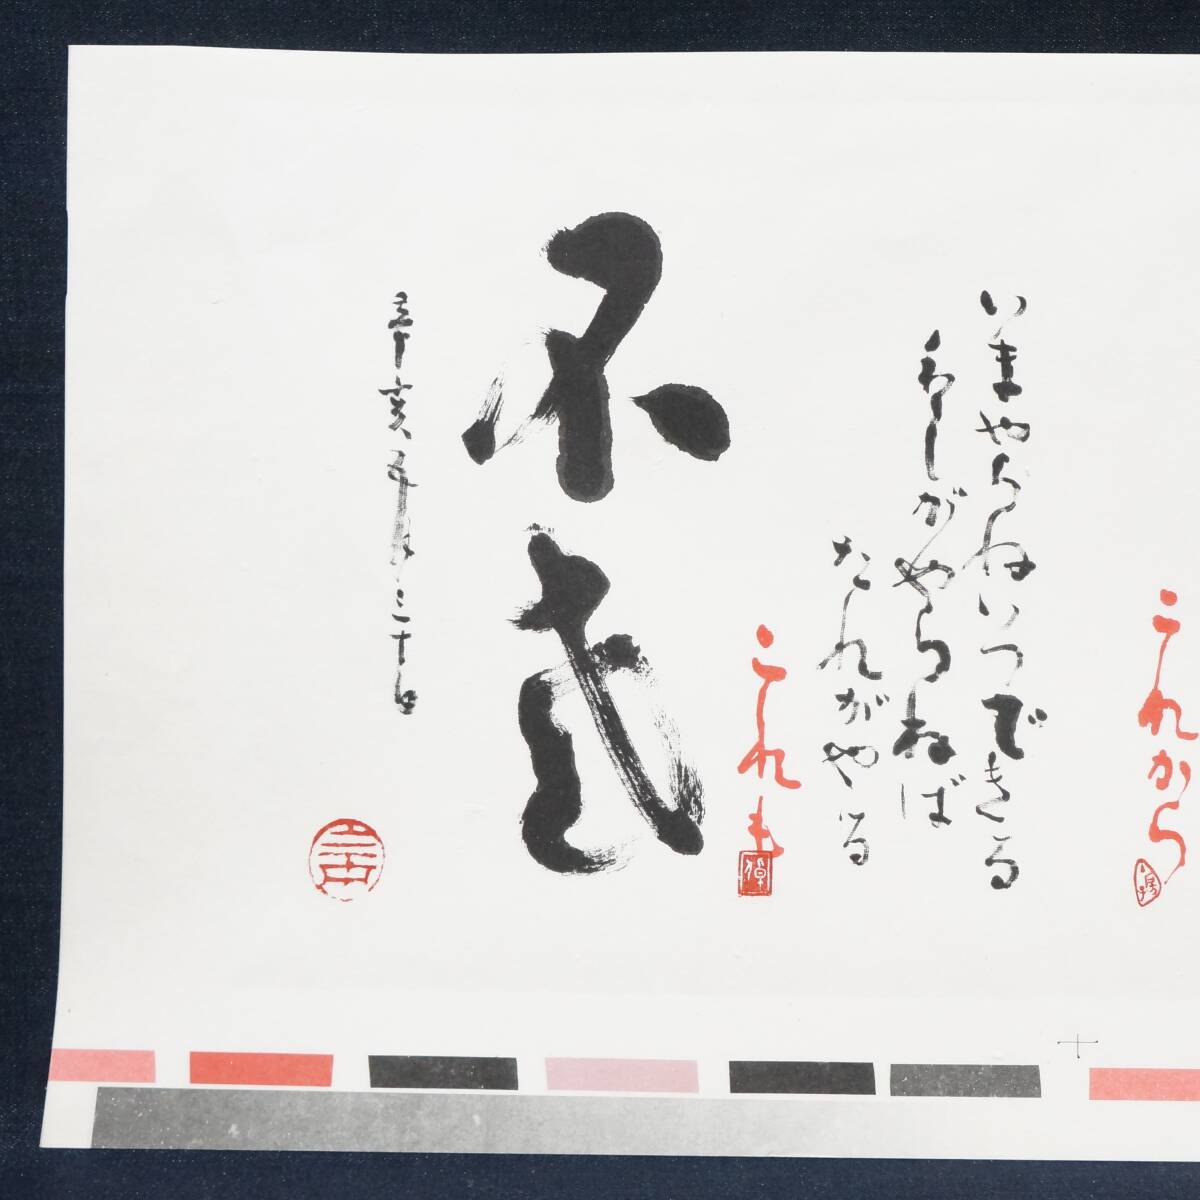 これから
いまやらねいつできる
わしがやらねば
たれがやる
これも
不老
辛亥五月三十日